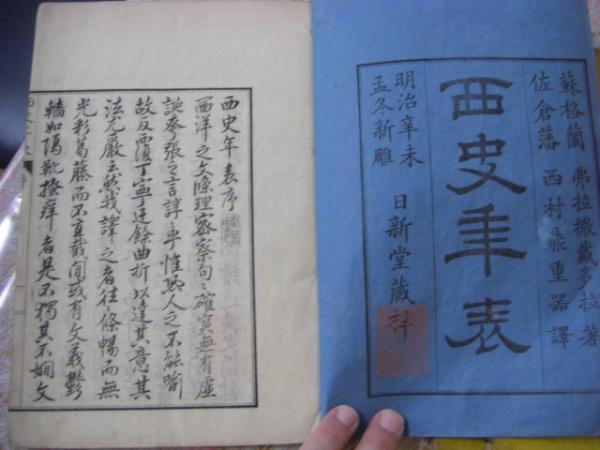 蘇格蘭 弗拉撒戴多拉著
佐倉藩 西村鼎重器譯
西史年表
明治辛未
孟冬新雕
日新堂蔵梓
西史年表序
西洋之文條理密察句〻確實無有虛
誕夸張之言諄〻乎惟恐人之不能喻
故反覆丁寧迂餘曲折以達其意其
法尤嚴云然我譯之者往〻條暢而無
光彩葛藤而不直截間或有文義鬱
轖如隔靴搔痒者是不獨其不嫻文